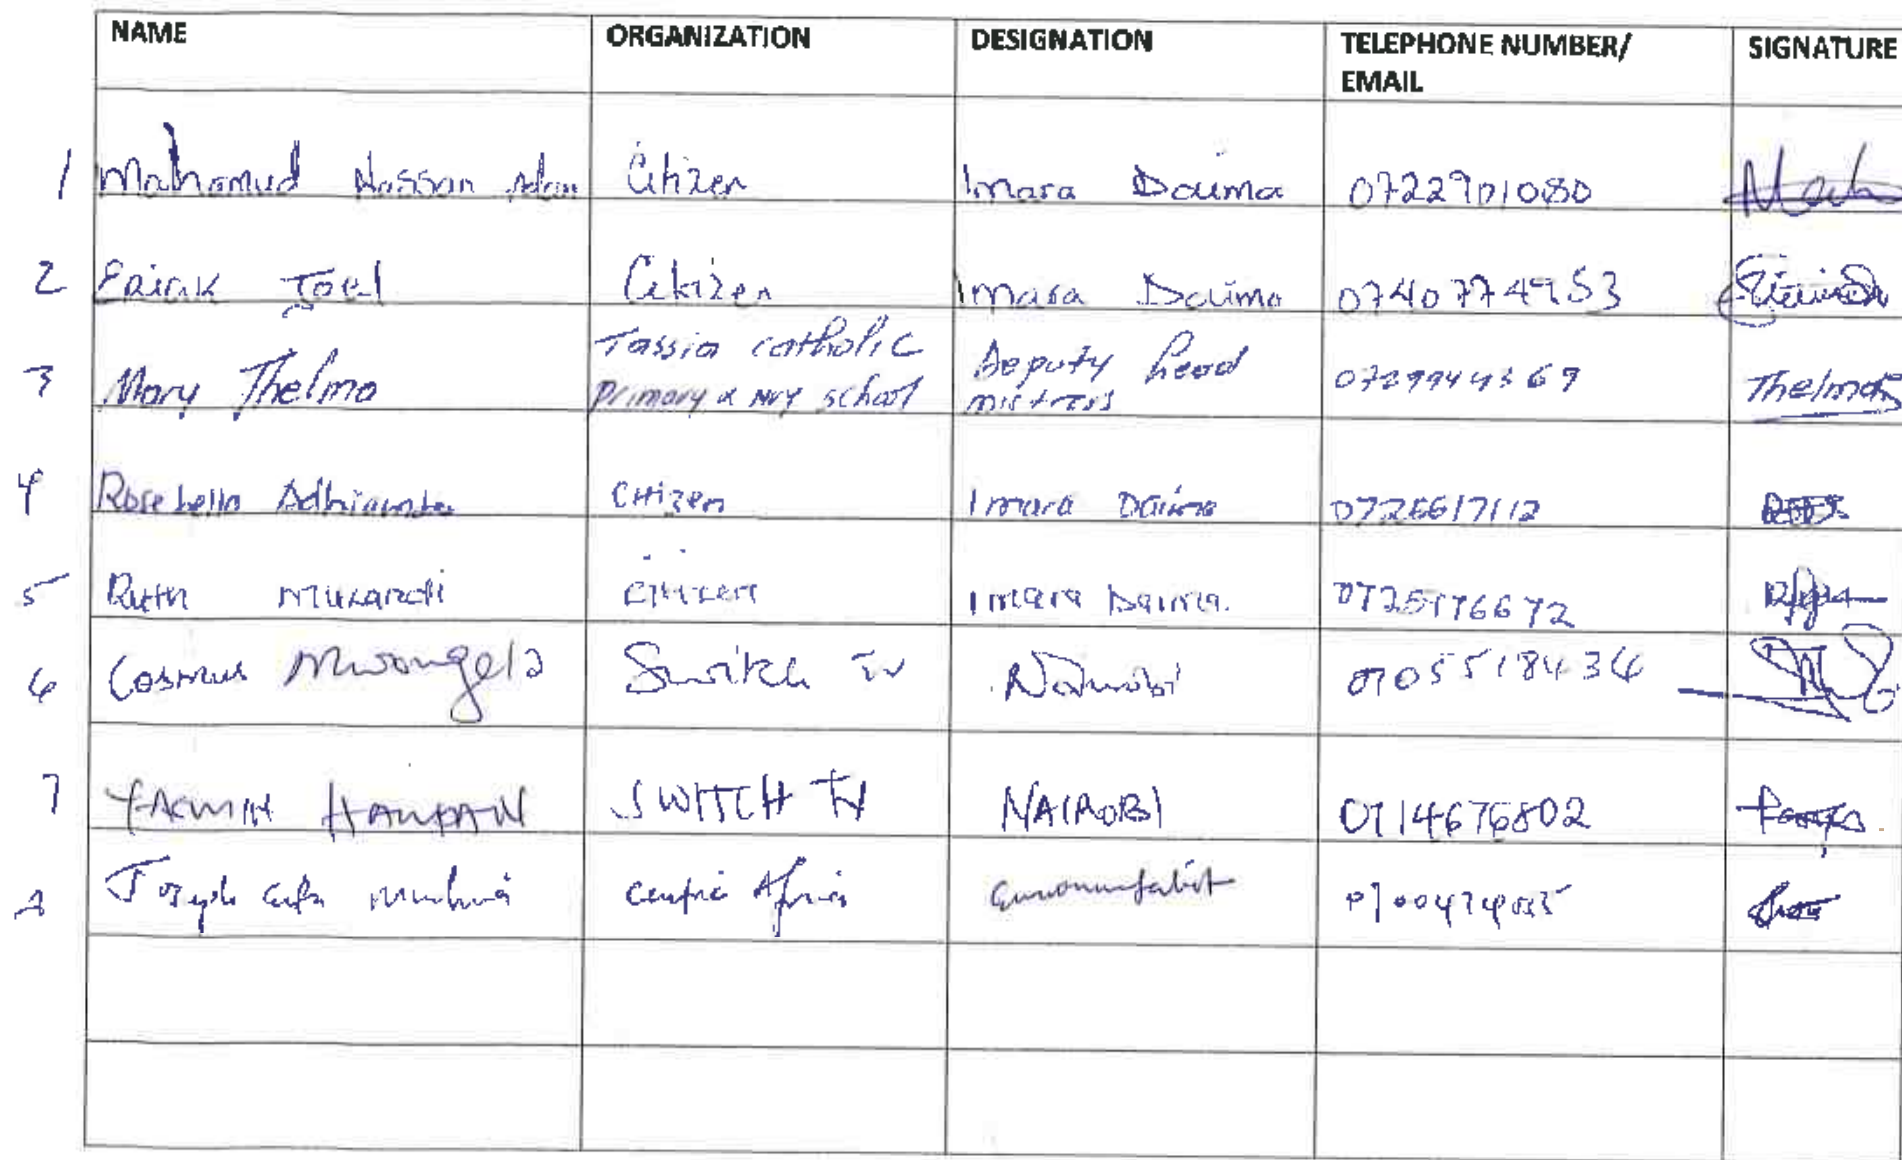 NAME ORGANIZATION DESIGNATION TELEPHONE NUMBER/ SIGNATURE
EMAIL
1 Mahamud Hassan Adan Citizen Imara Daima 0722901080
2 Erick Joel Citizen Imara Daima 0740774953
Tassia catholic Deputy head
3 Mary Thelma Primary & Nry school mistress 0729944569 Thelma
4 Rosebella Adhiambo Citizen Imara Daima 0726617112
5 Ruth Mukandi Citizen Imara Daima 0725776672
6 Cosmus Mwongela Switch TV Nairobi 0705518436
7 SWITCH TV NAIROBI 0714676802
8 Joseph Centric Africa